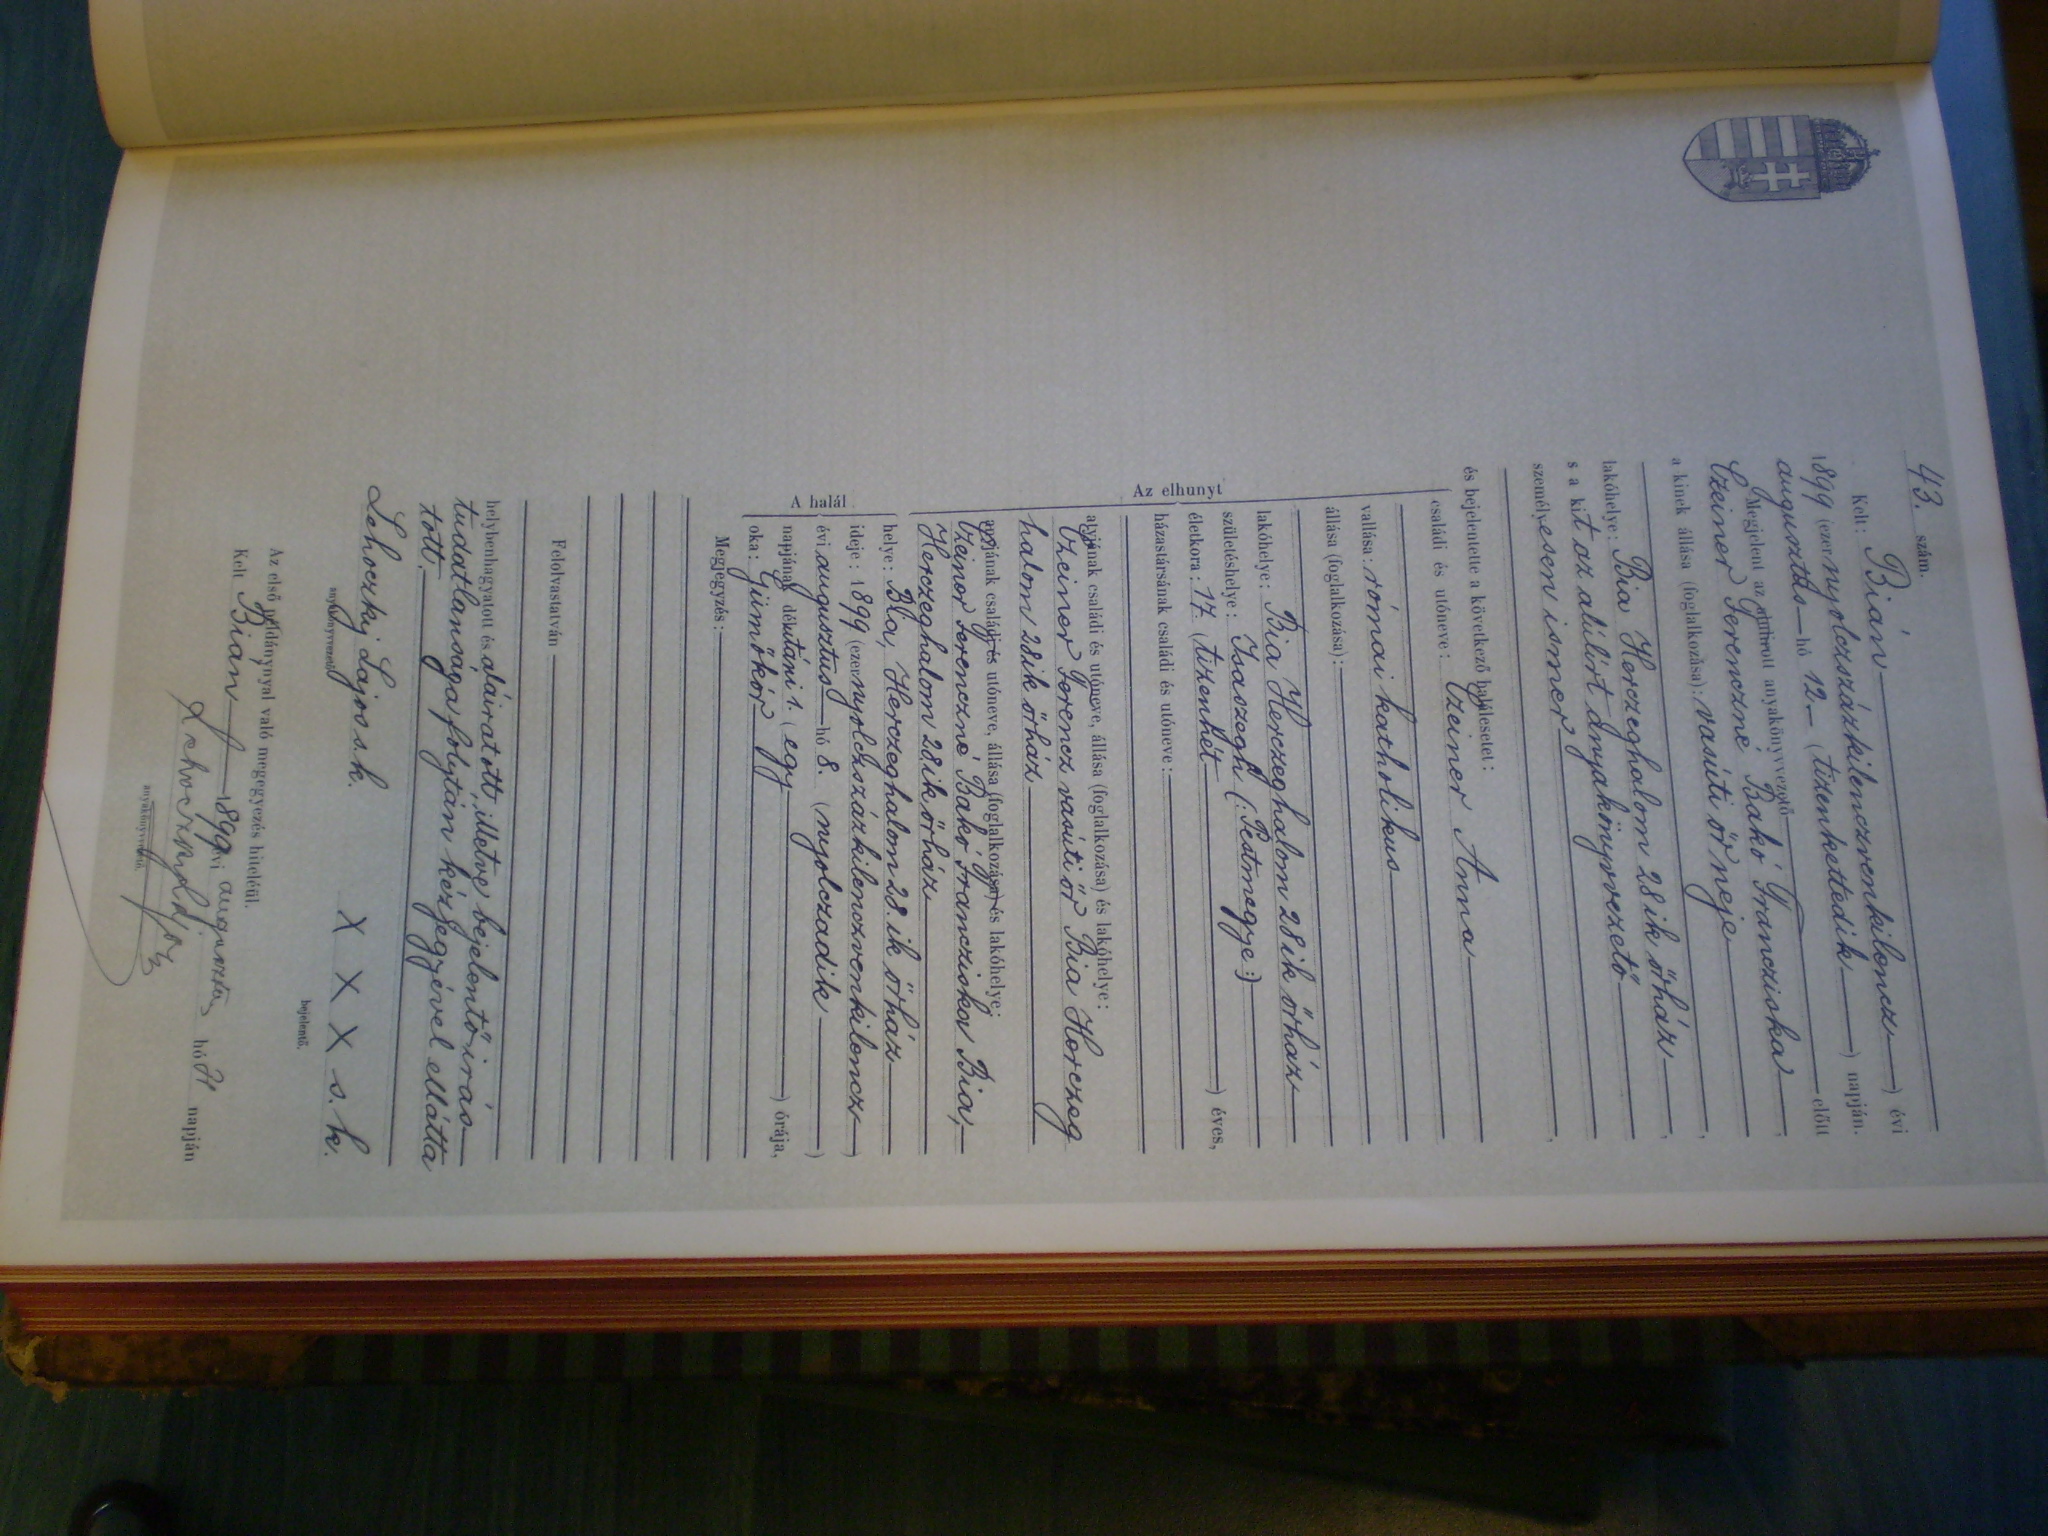 43. szám.
Kelt: Bián
1899 (ezernyolczszázkilenczvenkilencz) évi
augusztus hó 12. (tizenkettedik) napján.
Megjelent az alulirott anyakönyvvezető előtt
Czeiner Ferenczné Bakó Francziska
a kinek állása (foglalkozása): vasúti őr neje,
lakóhelye: Bia Herczeghalom 28ik őrház,
s a kit az alúlírt anyakönyvvezető
személyesen ismer,
és bejelentette a következő halálesetet:
Az elhunyt
családi és utóneve: Czeiner Anna
vallása: római katholikus
állása (foglalkozása):
lakóhelye: Bia Herczeghalom 28ik őrház
születéshelye: Isaszegh (:Pestmegye:)
életkora: 17. (tizenhét) éves,
házastársának családi és utóneve:
atyjának családi és utóneve, állása (foglalkozása) és lakóhelye:
Czeiner Ferencz vasúti őr Bia Herczeg
halom 28ik őrház
anyjának családi és utóneve, állása (foglalkozása) és lakóhelye:
Czeiner Ferenczné Bakó Francziska Bia,
Herczeghalom 28ik őrház
A halál
helye: Bia, Herczeghalom 28.ik őrház
ideje: 1899 (ezernyolczszázkilenczvenkilencz)
évi augusztus hó 8. (nyolczadik)
napjának délutáni 1. (egy) órája,
oka: Gümőkór
Megjegyzés:
Felolvastatván
helybenhagyatott és aláiratott, illetve bejelentő irás
tudatlansága folytán kézjegyével ellátta
tott.
Lehoczky Lajos s.k. X X X s.k.
anyakönyvvezető bejelentő.
Az első példánynyal való megegyezés hiteléül.
Kelt Bián 1899 évi augusztus hó 31 napján
anyakönyvvezető